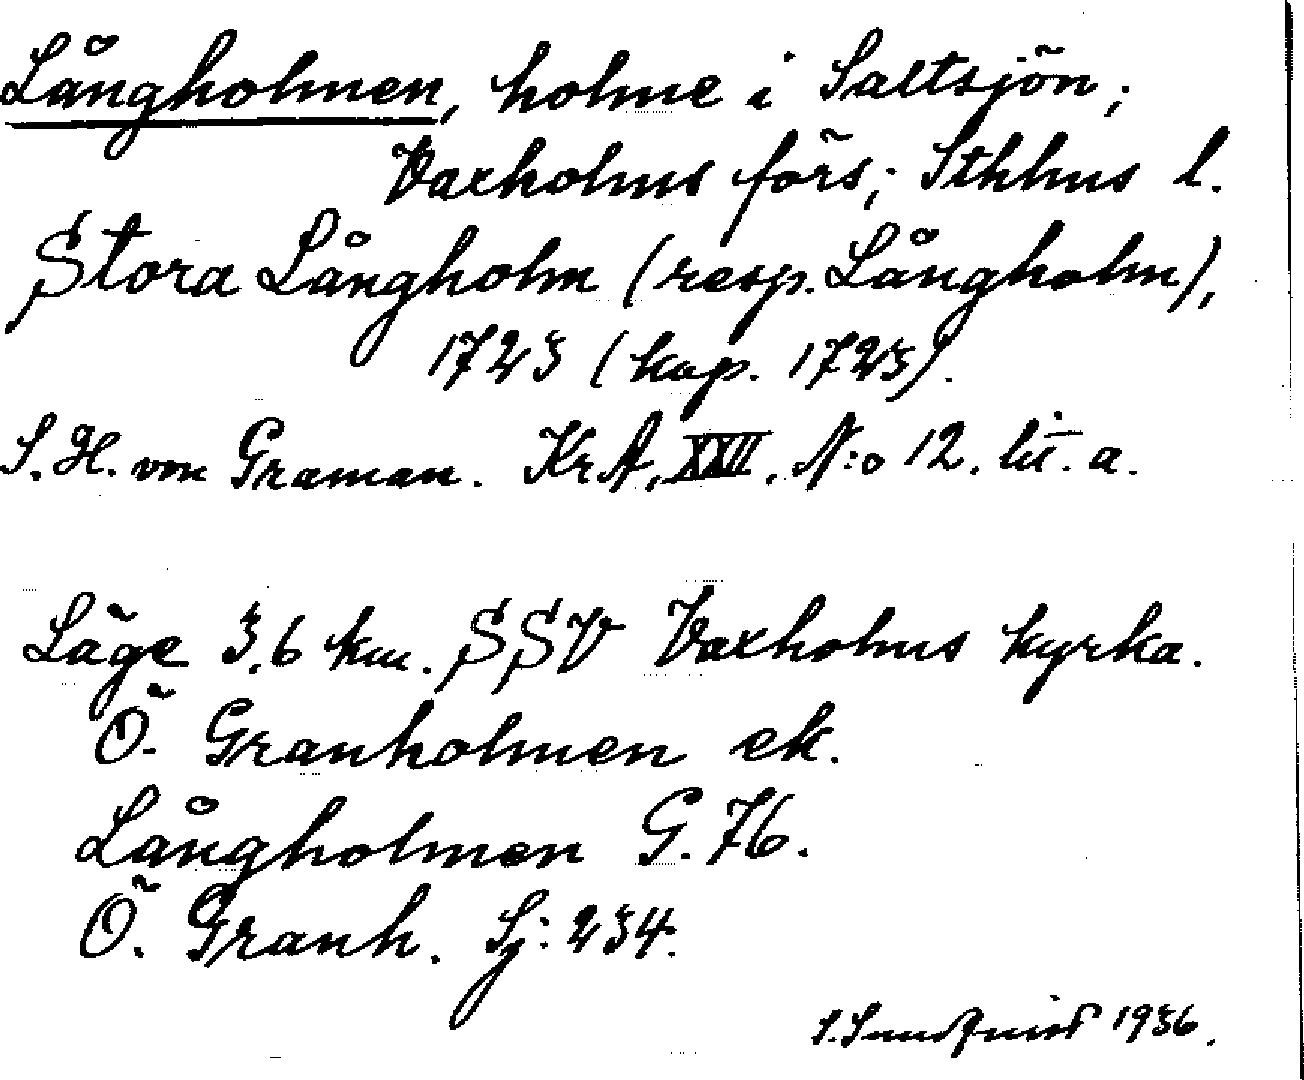 Långholmen, holme i Saltsjön;
Vaxholms förs; Sthlms l.
Stora Långholm (resp. Långholm),
1723 (kop. 1723).
S. H. von Graman. KrA, XXII, N:o 12. lit. a.
Läge 3,6 km. SSV Vaxholms kyrka.
Ö. Granholmen ek.
Långholmen G. 76.
Ö. Granh. Sj: 234.
S. Sundquist 1936.